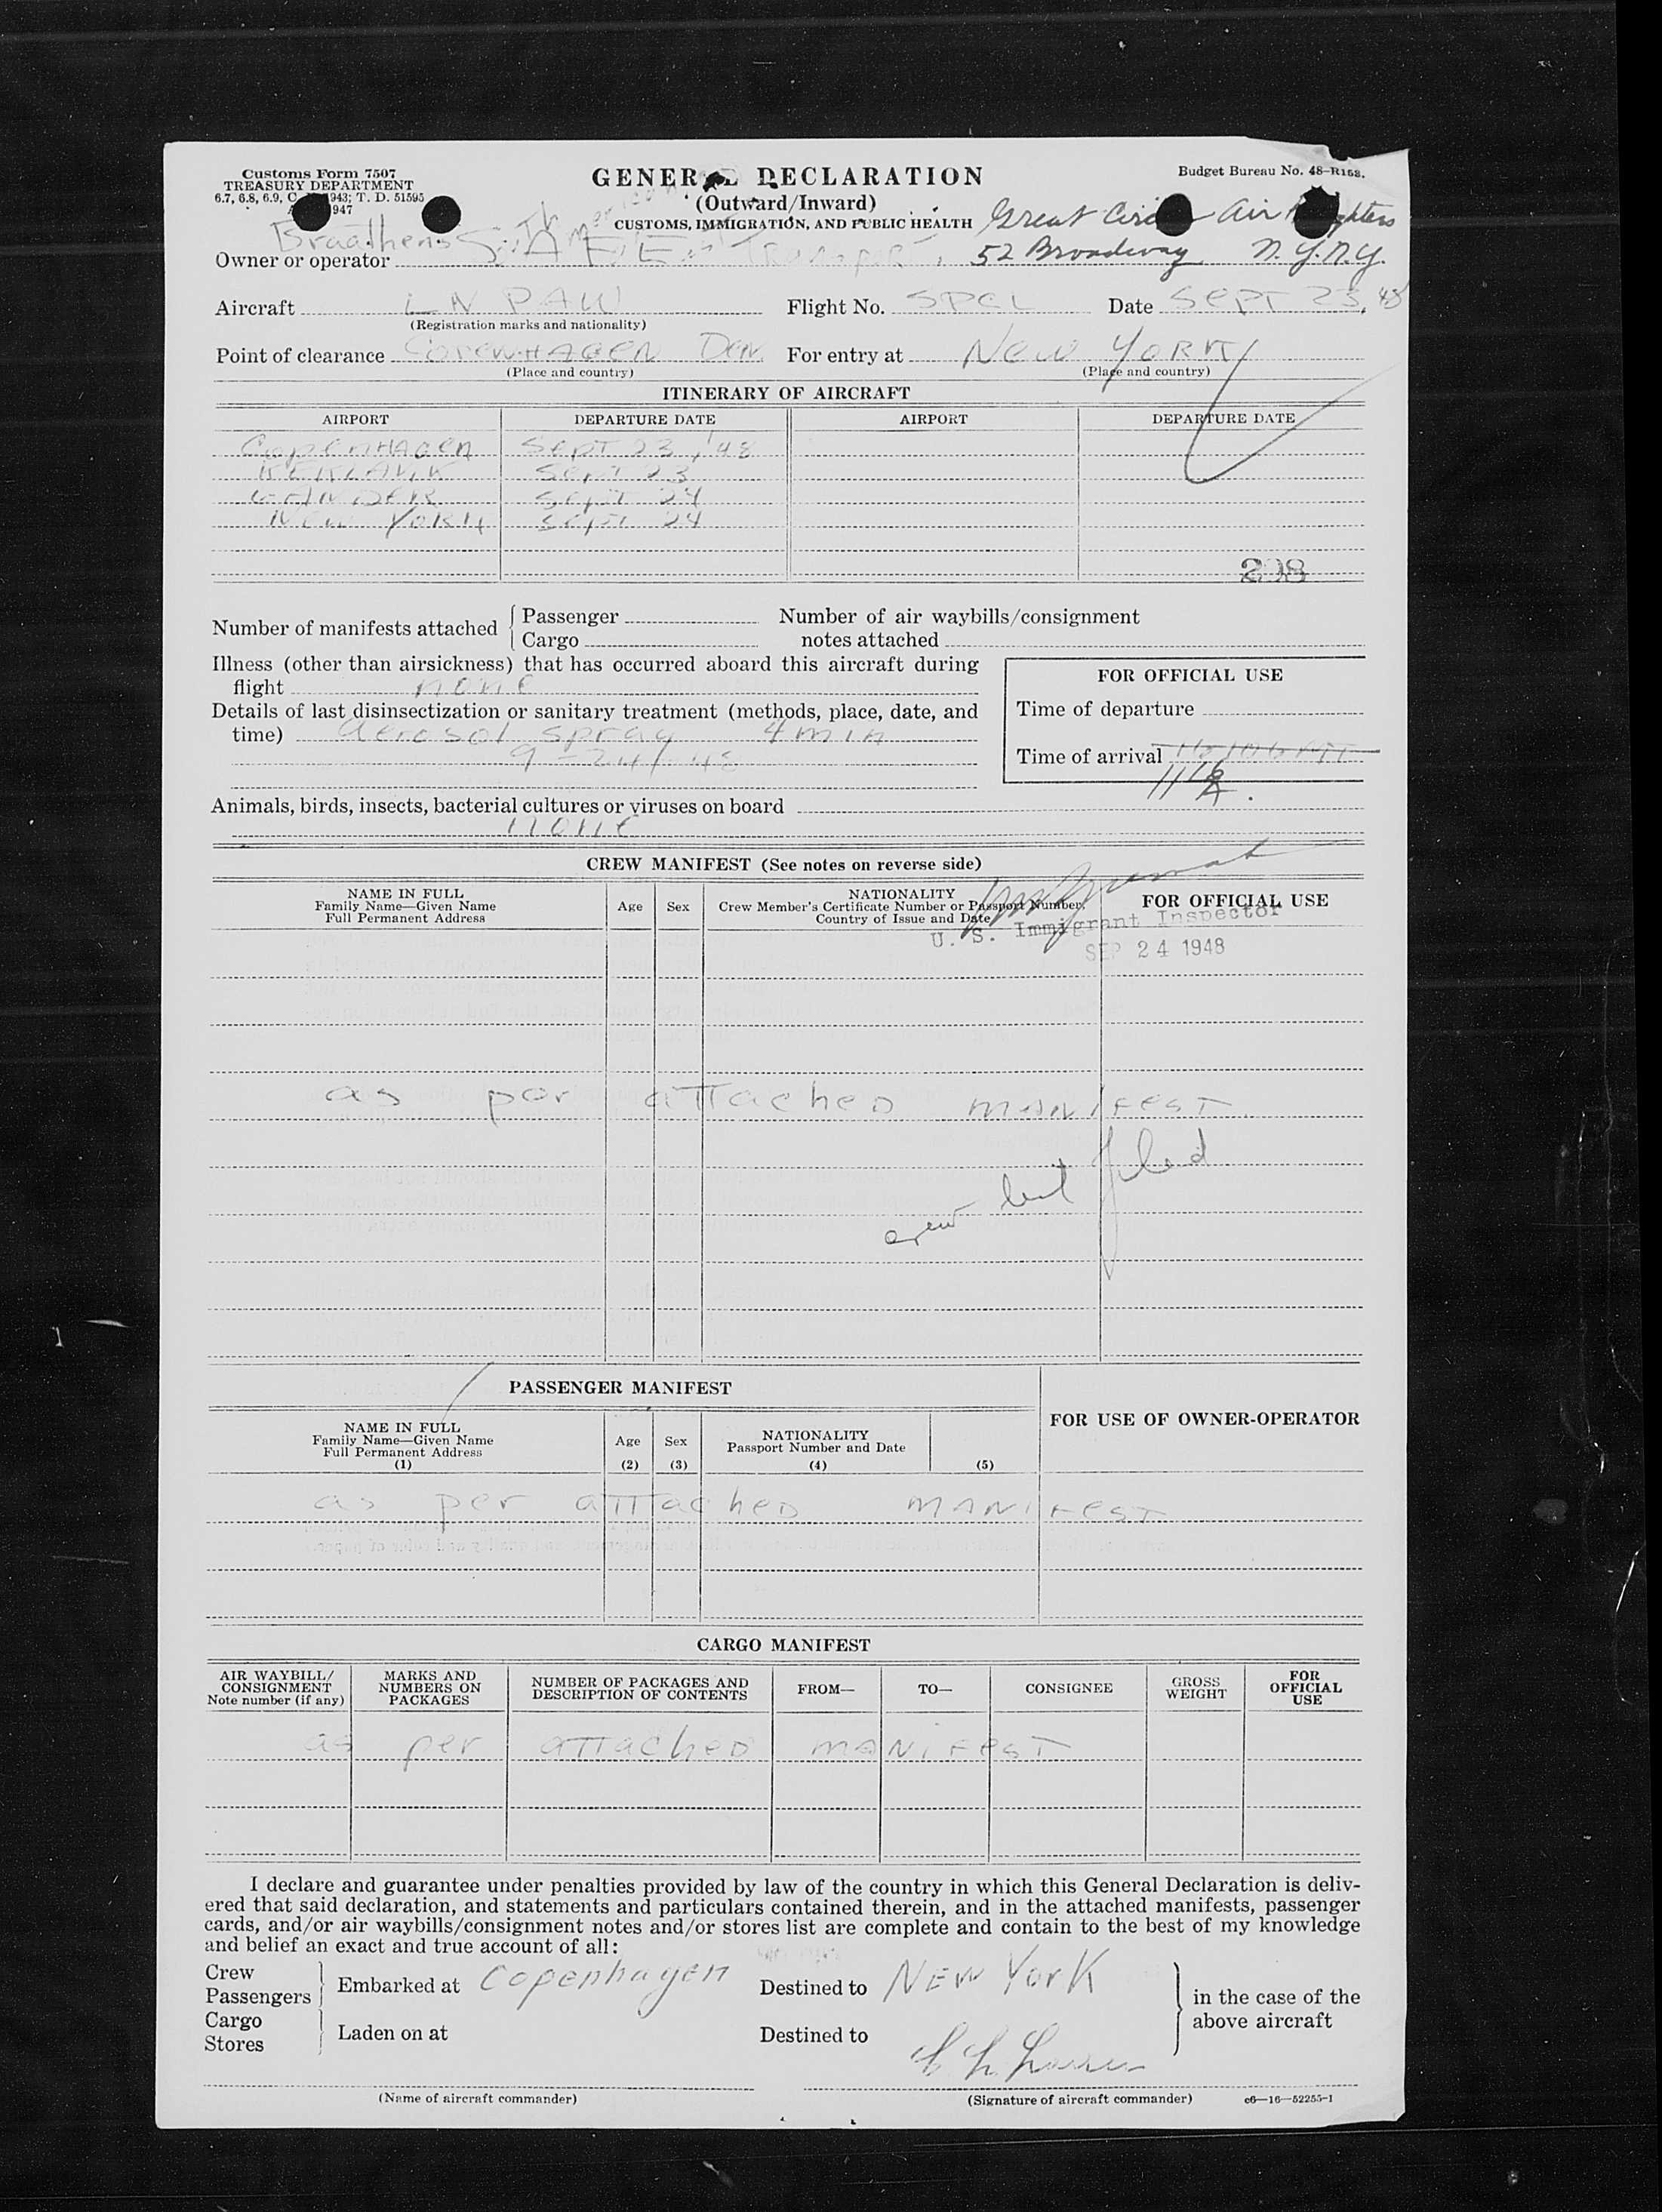 Customs Form 7507
TREASURY DEPARTMENT
6.7, 6.8, 6.9, C. 943; T. D. 51595
947
GENERAL DECLARATION
(Outward/Inward)
CUSTOMS, IMMIGRATION, AND PUBLIC HEALTH
Budget Bureau No. 48-R152.
Great Air
Braathens
Owner or operator S.A.F.E. Transport, 52 Broadway N.Y.N.Y.
Aircraft LN PAW Flight No. SPCL Date SEPT 23, 48
(Registration marks and nationality)
Point of clearance COPENHAGEN Den. For entry at NEW YORK
(Place and country) (Place and country)
ITINERARY OF AIRCRAFT
AIRPORT DEPARTURE DATE AIRPORT DEPARTURE DATE
COPENHAGEN SEPT 23, '48
SEPT 23
GANDER SEPT 24
NEW YORK SEPT 24
298
Number of manifests attached { Passenger Number of air waybills/consignment
Cargo notes attached
Illness (other than airsickness) that has occurred aboard this aircraft during
flight none
Details of last disinsectization or sanitary treatment (methods, place, date, and
time) aerosol spray 4 min
9-24-48
FOR OFFICIAL USE
Time of departure
Time of arrival
Animals, birds, insects, bacterial cultures or viruses on board
none
CREW MANIFEST (See notes on reverse side)
NAME IN FULL
Family Name—Given Name
Full Permanent Address
Age
Sex
NATIONALITY
Crew Member's Certificate Number or Passport Number,
Country of Issue and Date
FOR OFFICIAL USE
U. S. Immigrant Inspector
SEP 24 1948
as per attached MANIFEST
crew list filed
PASSENGER MANIFEST
NAME IN FULL
Family Name—Given Name
Full Permanent Address
(1)
Age
(2)
Sex
(3)
NATIONALITY
Passport Number and Date
(4)
(5)
FOR USE OF OWNER-OPERATOR
as per attached MANIFEST
CARGO MANIFEST
AIR WAYBILL/
CONSIGNMENT
Note number (if any)
MARKS AND
NUMBERS ON
PACKAGES
NUMBER OF PACKAGES AND
DESCRIPTION OF CONTENTS
FROM—
TO—
CONSIGNEE
GROSS
WEIGHT
FOR
OFFICIAL
USE
as per attached MANIFEST
I declare and guarantee under penalties provided by law of the country in which this General Declaration is deliv-
ered that said declaration, and statements and particulars contained therein, and in the attached manifests, passenger
cards, and/or air waybills/consignment notes and/or stores list are complete and contain to the best of my knowledge
and belief an exact and true account of all:
Crew
Passengers } Embarked at Copenhagen Destined to NEW YORK
Cargo
Stores } Laden on at Destined to
} in the case of the
above aircraft
(Name of aircraft commander) (Signature of aircraft commander) c6—16—52255-1